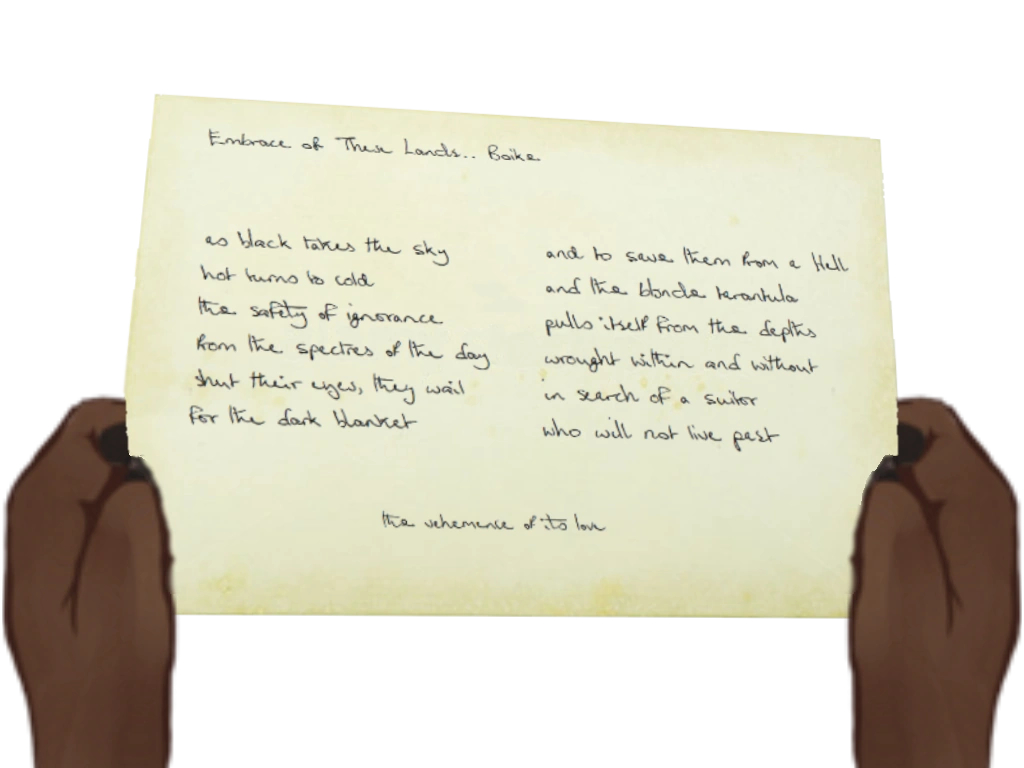 Embrace of These Lands.. Boike
as black takes the sky
hot turns to cold
the safety of ignorance
from the spectres of the day
shut their eyes, they wail
for the dark blanket
and to save them from a Hell
and the blonde tarantula
pulls itself from the depths
wrought within and without
in search of a suitor
who will not live past
the vehemence of its love